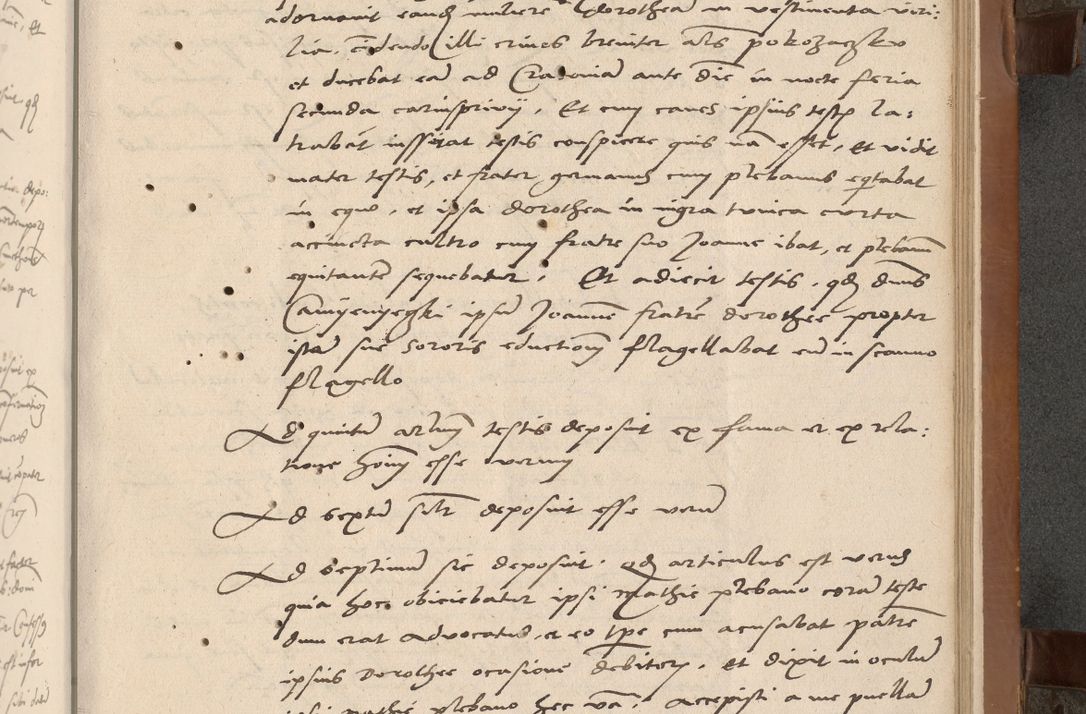 adornavit eand mulierē Dorotheā in vestimenta viri:
lia, cīdendo illi crines breviter als pokozaczku
et ducebat eā ad Cracoviā ante diē in nocte feria
secunda carnisprivij, Et cum canes ipsius testis la:
trabāt insserat testis conspicere quis nā esset, et vidit
mater testis, et frater germanus cum plebanus eqtabat
in equo, et ipsa Dorothea in nigra tunica curta
accincta cultro cum fratre suo Joanne ibat, et plebanū
equitantē sequebatur. Et adiecit testis, qd dnus
ipsum Joannē fratrē Dorothee propter
istā sue sororis eductionem flagellabat eū in scamno
flagello
Ad quintū artlum testis deposuit ex fama et ex rela:
tione hoim esse verum
Ad sextū silr deposuit esse verū
Ad septimū sic deposuit, qd articulus est verus
quia hoc obiciebatur ipsi Mathie plebano corā teste
dum erat advocatus, et eo tpre cum acusabat patrē
ipsius Dorothee ocasione debitorum, et dixit in oculū
ipsi Mathie plebano hec vā: accepisti a me puellā